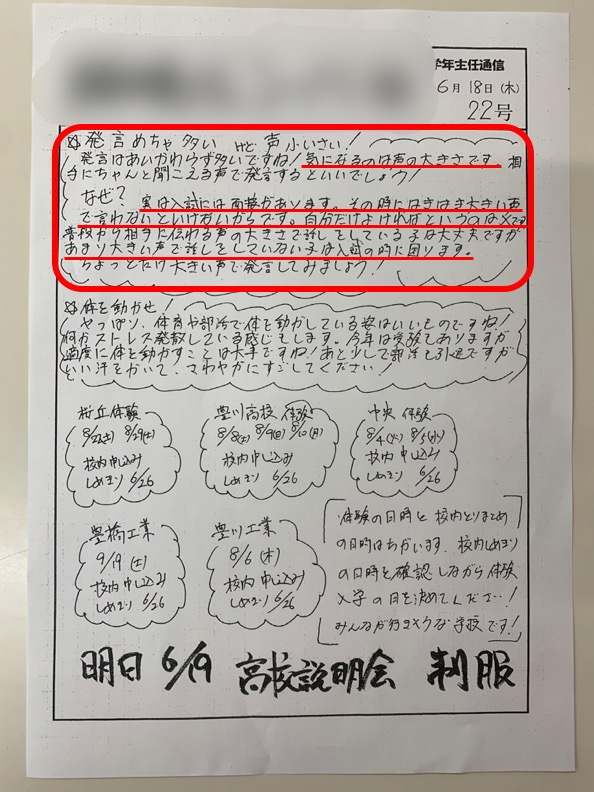 学年主任通信
6月18日(木)
22号
発言めちゃ多い けど 声小いさい!
発言はあいかわらず多いですね!気になるのは声の大きさです。相
手にちゃんと聞こえる声で発言するといいでしょう!
なぜ? 実は入試には面接があります。その時にはきはき大きい声
で言わないといけないからです。自分だけよければというのは×です
普段から相手に伝わる声の大きさで話しをしている子は大丈夫ですが
あまり大きい声で話しをしていない子は入試の時に困ります。
ちょっとだけ大きい声で発言してみましょう!
体を動かせ!
やっぱり、体育や部活で体を動かしている姿はいいものですね!
何かストレス発散している感じもします。今年は受験でありますが
適度に体を動かすことは大事ですね!あと少しで部活も引退ですが
いい汗をかいて、さわやかにすごしてください!
桜丘体験
8/22(土) 8/29(土)
校内申し込み
しめきり 6/26
豊川高校 体験
8/8(土) 8/9(日) 8/10(月)
校内申し込み
しめきり 6/26
中央 体験
8/4(火) 8/5(水)
校内申し込み
しめきり 6/26
豊橋工業
9/19(土)
校内申し込み
しめきり 6/26
豊川工業
8/6(木)
校内申し込み
しめきり 6/26
体験の日時と校内とりまとめ
の日時はちがいます。校内しめきり
の日時を確認しながら体験
入学の日を決めてください!
みんなが行きそうな学校です!
明日 6/19 高校説明会 制服